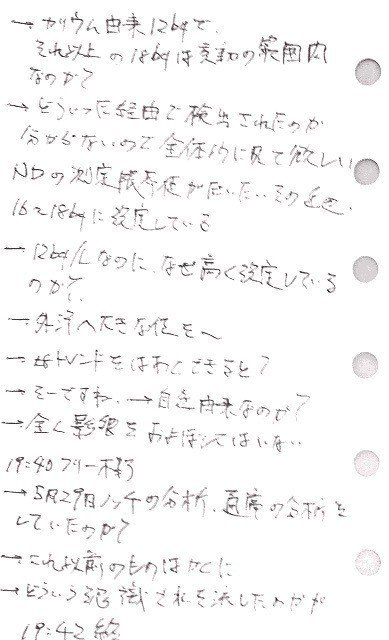 →カリウム由来12Bqで、
それ以上の18Bqは変動の範囲内
なのか?
→どういった経由で検出されたのか
分からないので全体的に見て欲しい
NDの測定限界値がだいたいその
16〜18Bqに設定している
→12Bq/Lなのに、なぜ高く設定している
のか?
→外洋へ大きな値を〜
→トレンドをはあくできると?
→そーですね、→自然由来なのか?
→全く影響をおよぼしてはいない
19:40フリー
→5月29日 の分析、通常の分析を
していたのか?
→これ以前のものは
→どういう認識でこれを流したのかが
19:42 終